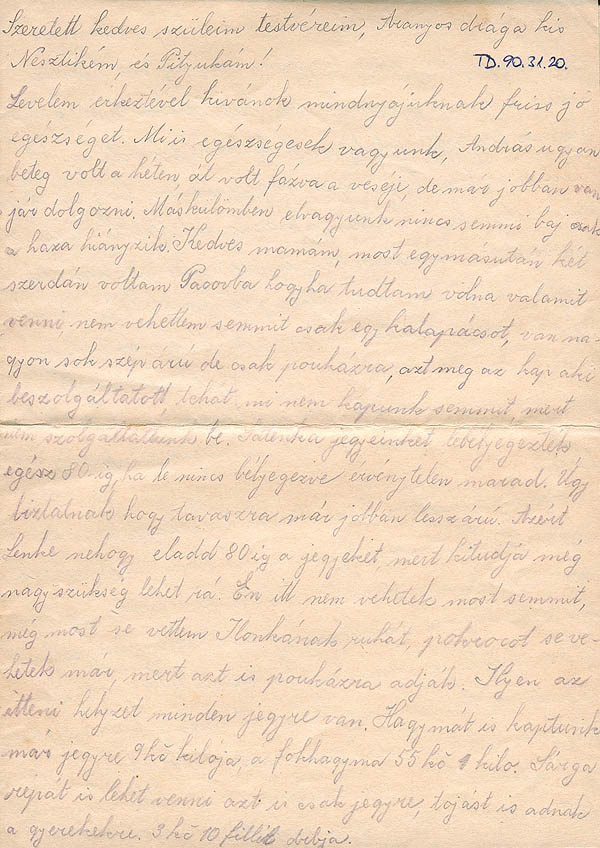 Szeretett kedves szüleim testvéreim, Aranyos drága kis
Neszlikém, és Pityukám!
TD.90.31.20.
Levelem érkeztével kivánok mindnyájuknak friss jó
egészséget. Mi is egészségesek vagyunk, András ugyan
beteg volt a héten, át volt fázva a veséji, de már jobban van
jár dolgozni. Máskülömben elvagyunk nincs semmi baj csak
a haza hiányzik. Kedves mamám, most egymásután két
szerdán voltam Pacovba hogy ha tudtam volna valamit
venni, nem vehettem semmit csak egy kalapácsot, van na-
gyon sok szép árú de csak poukázra, azt meg az kap aki
beszolgáltatott, tehát mi nem kapunk semmit, mert
nem szolgáltattunk be. Satenka jegyeinket lebélyegezték
egész 80-ig, ha le nincs bélyegezve érvénytelen marad. Úgy
biztatnak hogy tavaszra már jobban lessz árú. Azért
Lenke nehogy eladd 80ig a jegyeket, mert kitudja még
nagy szükség lehet rá. Én itt nem vehetek most semmit,
még most se vettem Ilonkának ruhát, pokrocot se ve-
hetek már, mert azt is poukázra adják. Ilyen az
itteni helyzet minden jegyre van. Hagymát is kaptunk
már jegyre 9 kč kiloja, a fokhagyma 55 kč 1 kilo. Sárga
répát is lehet venni azt is csak jegyre, tojást is adnak
a gyerekekre. 3 kč 10 fillér dbja.